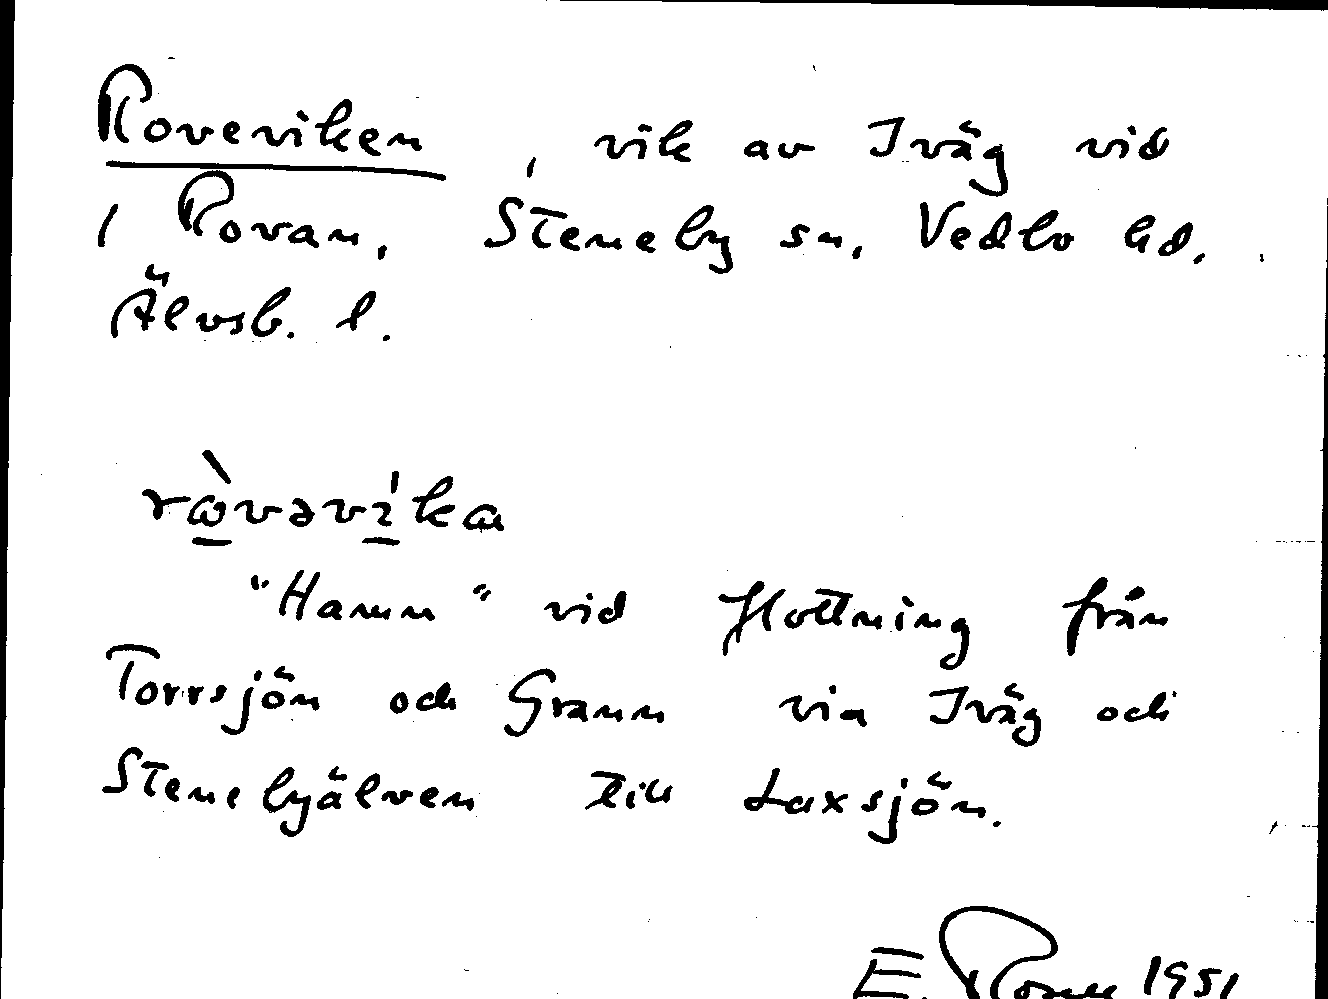 Roveviken, vik av Iväg vid
/ Rovan, Steneby sn, Vedbo hd.
Älvsb. l.
rὼvəvı́ka
"Hamn" vid flottning från
Torrsjön och Grann via Iväg och
Stenebyälven till Laxsjön.
E. 1951